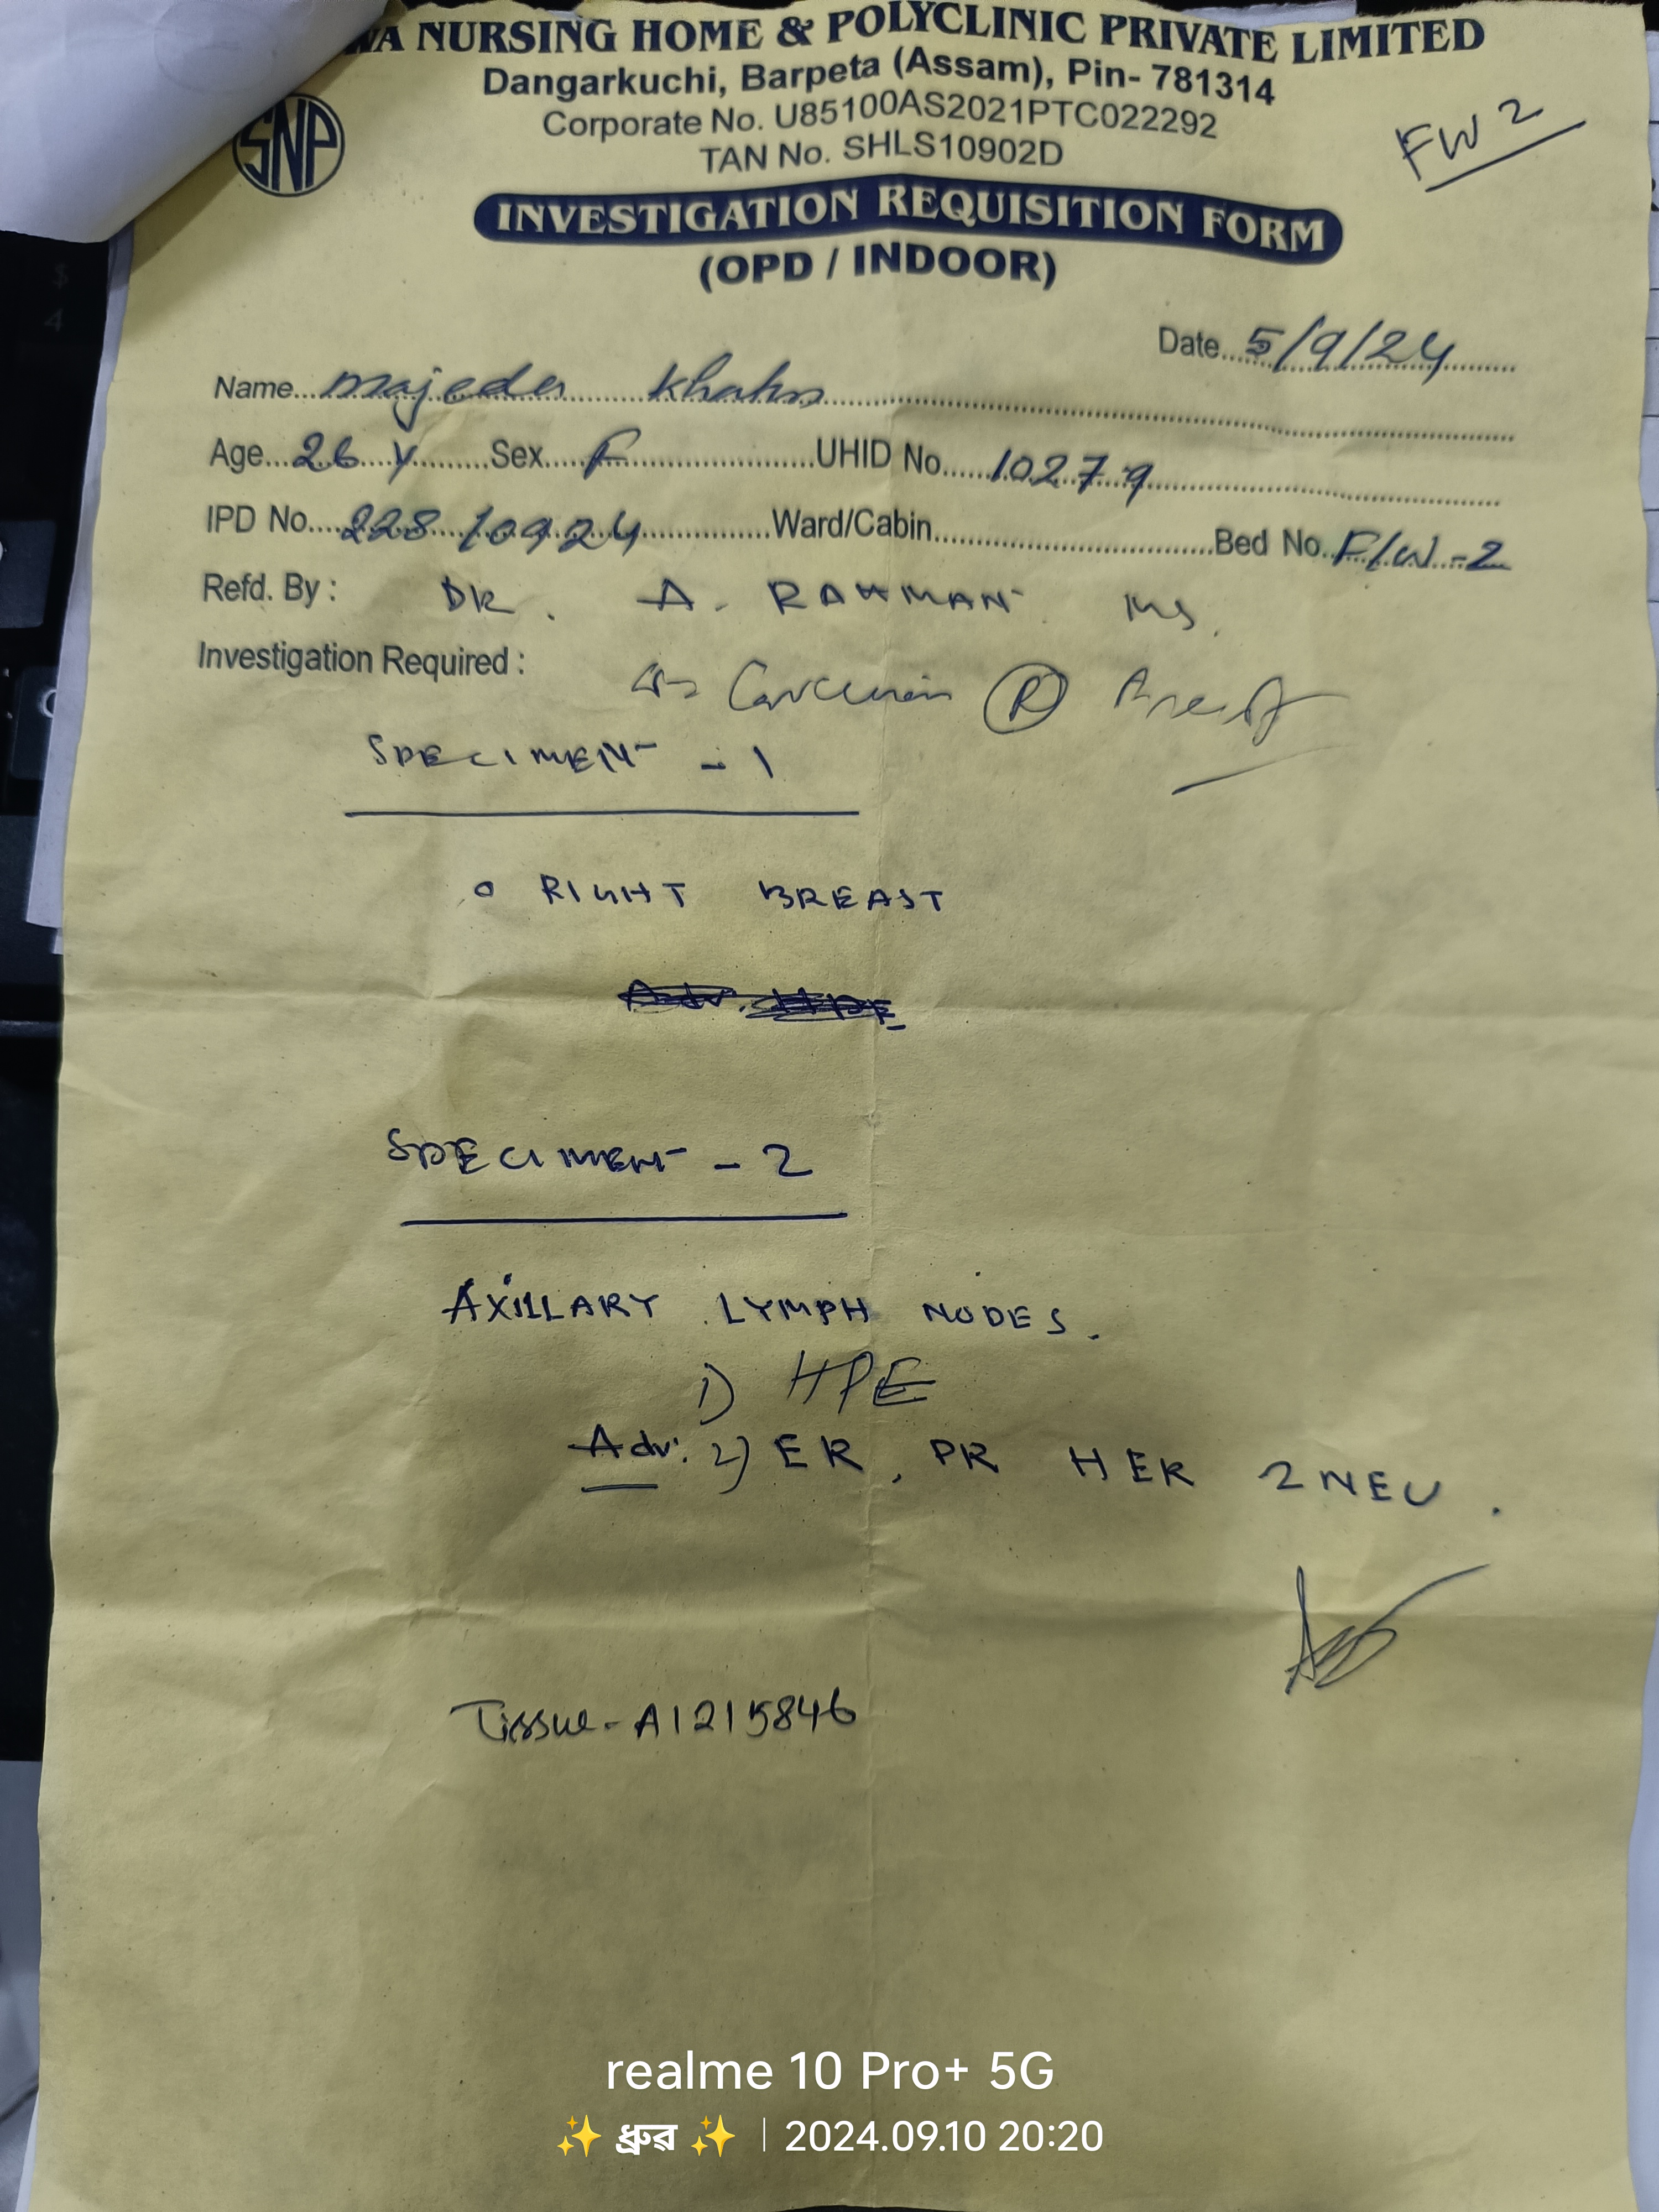 WA NURSING HOME & POLYCLINIC PRIVATE LIMITED
Dangarkuchi, Barpeta (Assam), Pin- 781314
Corporate No. U85100AS2021PTC022292
TAN No. SHLS10902D
SNP
FW 2
INVESTIGATION REQUISITION FORM
(OPD / INDOOR)
Date 5/9/24
Name Majeda
Age 26 Y Sex F UHID No. 10279
IPD No. 228/0924 Ward/Cabin Bed No. F/W-2
Refd. By : DR. A. RAHMAN MS.
Investigation Required :
Carcinoma (R) Breast
SPECIMENT - 1
o RIGHT BREAST
Adv. HPE
SPECIMENT - 2
AXILLARY LYMPH NODES.
1) HPE
Adv: 2) ER, PR HER 2 NEU.
Tissue-A1215846
realme 10 Pro+ 5G
✨ ধ্রুৱ ✨ | 2024.09.10 20:20